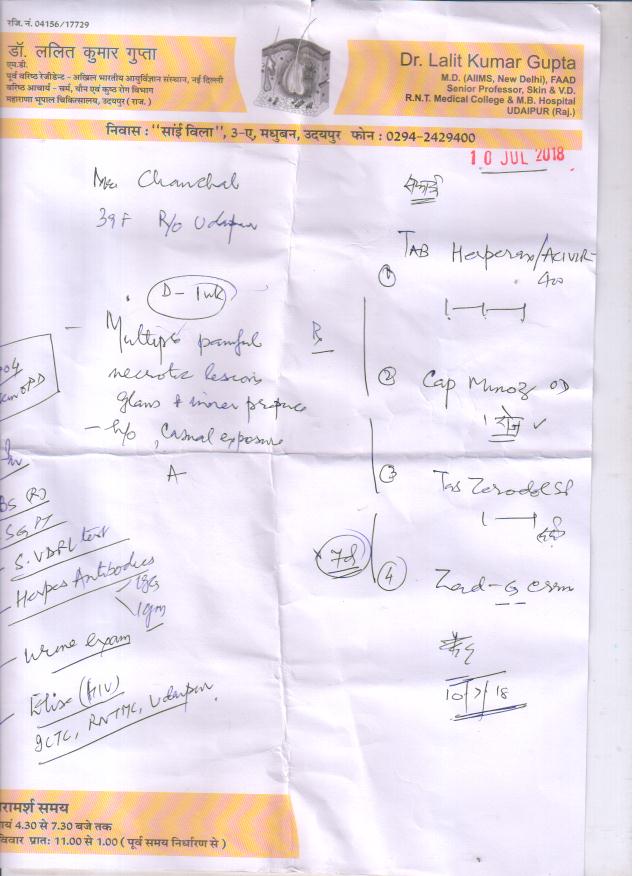 रजि. नं. 04156/17729
डॉ. ललित कुमार गुप्ता
एम.डी.
पूर्व वरिष्ठ रेजीडेन्ट - अखिल भारतीय आयुर्विज्ञान संस्थान, नई दिल्ली
वरिष्ठ आचार्य - चर्म, यौन एवं कुष्ठ रोग विभाग
महाराणा भूपाल चिकित्सालय, उदयपुर ( राज. )
Dr. Lalit Kumar Gupta
M.D. (AIIMS, New Delhi), FAAD
Senior Professor, Skin & V.D.
R.N.T. Medical College & M.B. Hospital
UDAIPUR (Raj.)
निवास : "सांई विला", 3-ए, मधुबन, उदयपुर फोन : 0294-2429400
10 JUL 2018
Chanchal
39 F R/o Udaipur
D - 1wk
- Multiple painful
necrotic lesions
glans + inner prepuce
- h/o casual exposure
A
BS (R)
SGPT
- S. VDRL test
- Herpes Antibodies
IgG
IgM
- Urine exam
- Elisa (HIV)
ICTC, RNTMC, Udaipur
Rx
① TAB Herperax/ACIVIR-
400
② Cap Minoz OD
1 रोज
③ Tab Zerodol SP
④ cream
x 7d
10/7/18
रामर्श समय
ायं 4.30 से 7.30 बजे तक
विवार प्रातः 11.00 से 1.00 ( पूर्व समय निर्धारण से )